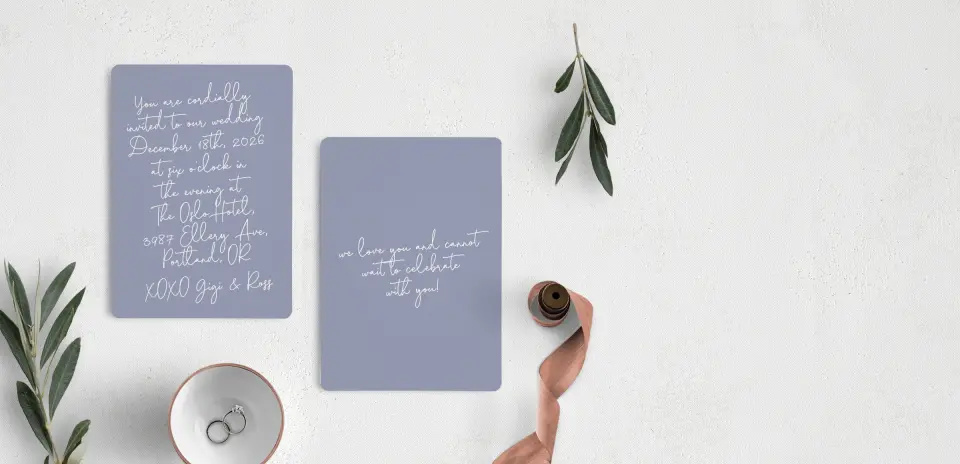 You are cordially
invited to our wedding
December 18th, 2026
at six o'clock in
the evening at
The Oslo Hotel,
3987 Ellery Ave,
Portland, OR
XOXO Gigi & Ross
we love you and cannot
wait to celebrate
with you!